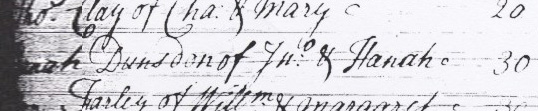 Tho.s Clay of Cha: & Mary 20
Hanah Dunsden of Jn.o & Hanah 30
Farley of Will.m & Margaret